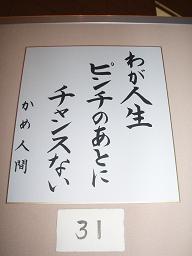 わが人生
ピンチのあとに
チャンスない
かめ人間
31